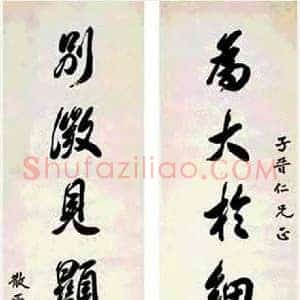 子晉仁兄正
為大於細
別微見顯
散
Shufaziliao.com